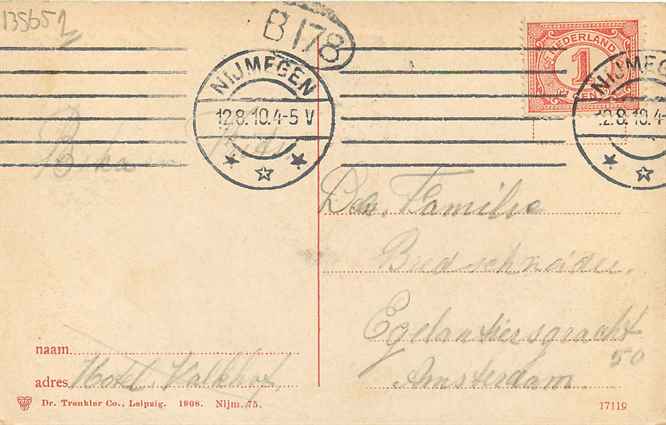 135652
B 178
NIJMEGEN
12.8.10.4-5 V
NEDERLAND
1
CENT
NIJMEGEN
12.8.10.4-
Den Familie
Budschneider.
Egelantiersgracht
50
Amsterdam.
naam
adres Hotel Valkhof,
Dr. Trenkler Co., Leipzig. 1908. Nijm. 75.
17119